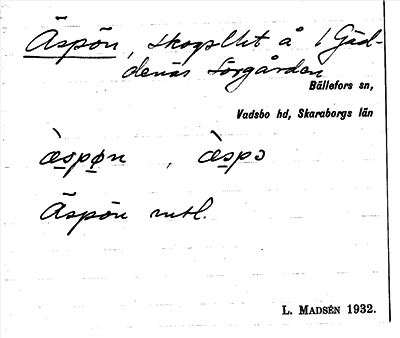 Äspön, skogslht å 1 Gäd-
denäs Sörgården
Bällefors sn,
Vadsbo hd, Skaraborgs län
æ̀spøn, æ̀spɔ
Äspön mtl.
L. Madsén 1932.